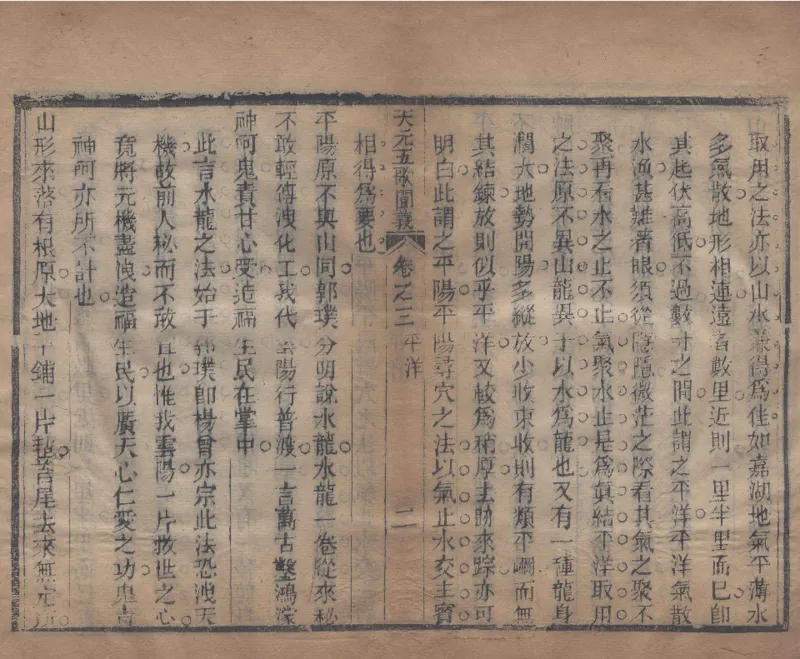 取用之法亦以山水兼得為佳如嘉湖地氣平薄水
多氣散地形相連遠者數里近則一里半里而已即
其起伏高低不過數寸之間此謂之平洋平洋氣散
水漁甚難著眼須從隱隱微茫之際看其氣之聚不
聚再看水之止不止氣聚水止是為眞結平洋取用
之法原不異山龍異于以水為龍也又有一種龍身
濶大地勢開陽多縱放少收束收則有類平岡而無
其結鍊放則似乎平洋又較為稍厚主助來踪亦可
明白此謂之平陽平陽尋穴之法以氣止水交主賓
相得為要也
天元五歌闡義 卷之三 平洋 二
平陽原不與山同郭璞分明說水龍水龍一卷從來秘
不敢輕傳洩化工我代雲陽行普渡一言萬古鑿鴻濛
神呵鬼責甘心受造福生民在掌中
此言水龍之法始于郭璞即楊曾亦宗此法恐洩天
機故前人秘而不敢宣也惟我雲陽一片救世之心
竟將元機盡洩造福生民以廣天心仁愛之功鬼責
神呵亦所不計也
山形來落有根原大地平鋪一片氊首尾去來無定所